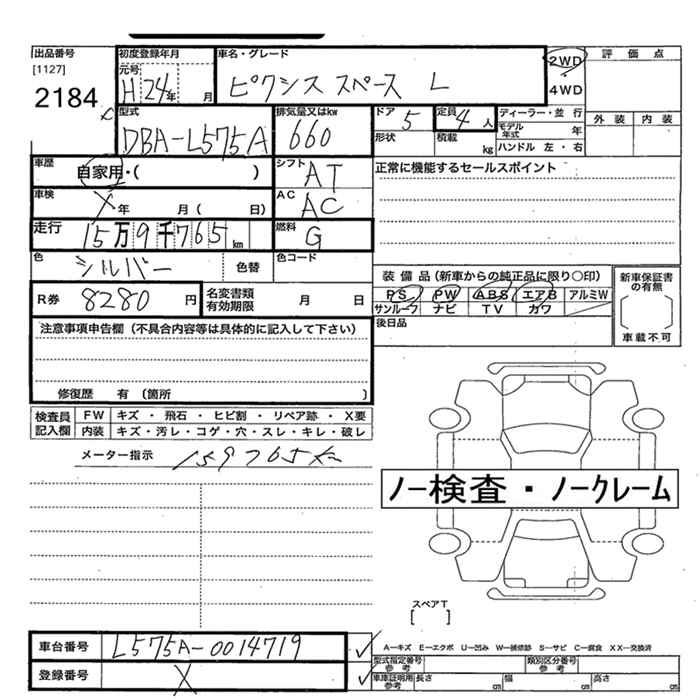 出品番号
[1127]
2184
初度登録年月
元号
H 24年 月
車名・グレード
ピクシス スペース L
2WD
4WD
評価点
外装 内装
型式
DBA-L575A
排気量又はkw
660
ドア 5
定員 4 人
形状
積載 kg
ディーラー・並行
モデル年式 年
ハンドル 左・右
車歴
自家用・( )
シフト
AT
正常に機能するセールスポイント
車検
X年 月( 日)
AC
AC
走行
15万9千765km
燃料
G
色
シルバー
色替
色コード
装備品(新車からの純正品に限り○印)
PS PW ABS エアB アルミW
サンルーフ ナビ TV カワ
新車保証書の有無
車載不可
R券 8280 円
名変書類有効期限 月 日
後日品
注意事項申告欄(不具合内容等は具体的に記入して下さい)
修復歴 有 〔箇所 〕
検査員記入欄
FW キズ・飛石・ヒビ割・リペア跡・X要
内装 キズ・汚レ・コゲ・穴・スレ・キレ・破レ
メーター指示 159765K
ノー検査・ノークレーム
スペアT
[ ]
車台番号 L575A-0014719
登録番号 X
A―キズ E―エクボ U―凹み W―補修跡 S―サビ C―腐食 XX―交換済
型式指定番号参考 類別区分番号参考
車庫証明用参考 長さ cm 幅 cm 高さ cm